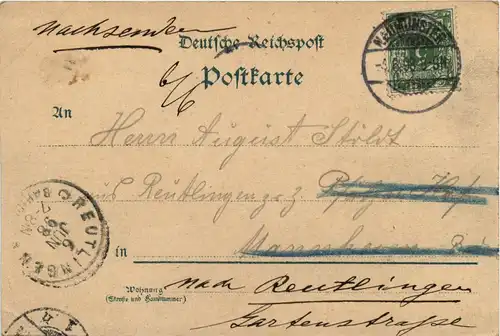 nachsenden
Deutsche Reichspost
Postkarte
An
Herrn August Stöldt
aus Reutlingen z. Z. Pfälzer Hof
in Mannheim
Wohnung
(Straße und Hausnummer)
nach Reutlingen
Gartenstraße
REUTLINGEN
JUN
98